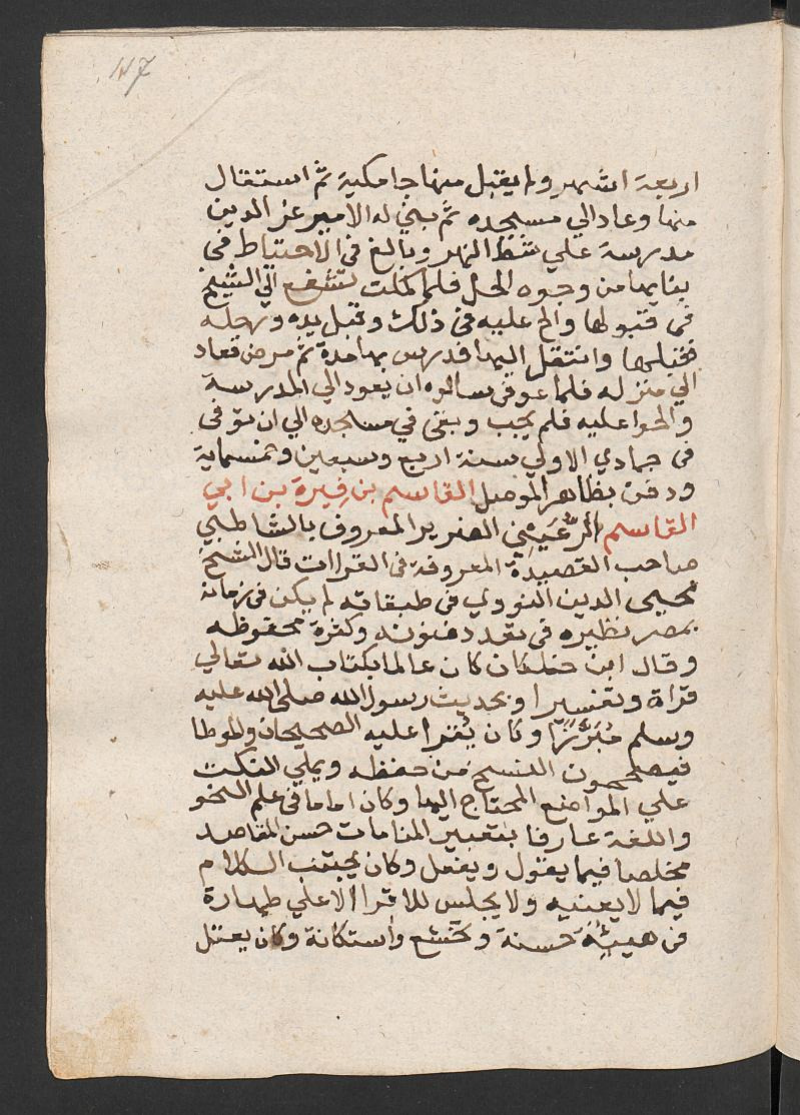 ١٤٧
اربعة اشهر ولم يقبل منها جامكية ثم استقال
منها وعاد الي مسجده ثم بني له الامير عز الدين
مدرسة علي شط النهر وبالغ في الاحتياط في
بنايها من وجوه الحل فلما كملت تشفع الي الشيخ
في قبولها والح عليه في ذلك وقبل يده ورجله
فقبلها وانتقل اليها فدرس بها مدة ثم مرض فعاد
الي منزله فلما عوفي سالوه ان يعود الي المدرسة
والحوا عليه فلم يجب وبقي في مسجده الي ان توفي
في جمادي الاولي سنة اربع وسبعين وخمسماية
ودفن بظاهر الموصل القاسم بن فيرة بن ابي
القاسم الرُّعَيْني الضرير المعروف بالشاطبي
صاحب القصيدة المعروفة في القراات قال الشيخ
محيي الدين النووي في طبقاته لم يكن في زمانه
بمصر نظيره في تعدد فنونه وكثرة محفوظه
وقال ابن خلكان كان عالما بكتاب الله تعالي
قراة وتفسيرا وبحديث رسول الله صلى الله عليه
وسلم مُبَرِّزًا وكان يُقرا عليه الصحيحان والموطا
فيصححون النسخ من حفظه ويملي النكت
علي المواضع المحتاج اليها وكان اماما في علم النحو
واللغة عارفا بتعبير المنامات حسن المقاصد
مخلصا فيما يقول ويفعل وكان يجتنب الكلام
فيما لا يعنيه ولا يجلس للاقرا الا علي طهارة
في هيئة حسنة وتخشع واستكانة وكان يعتل